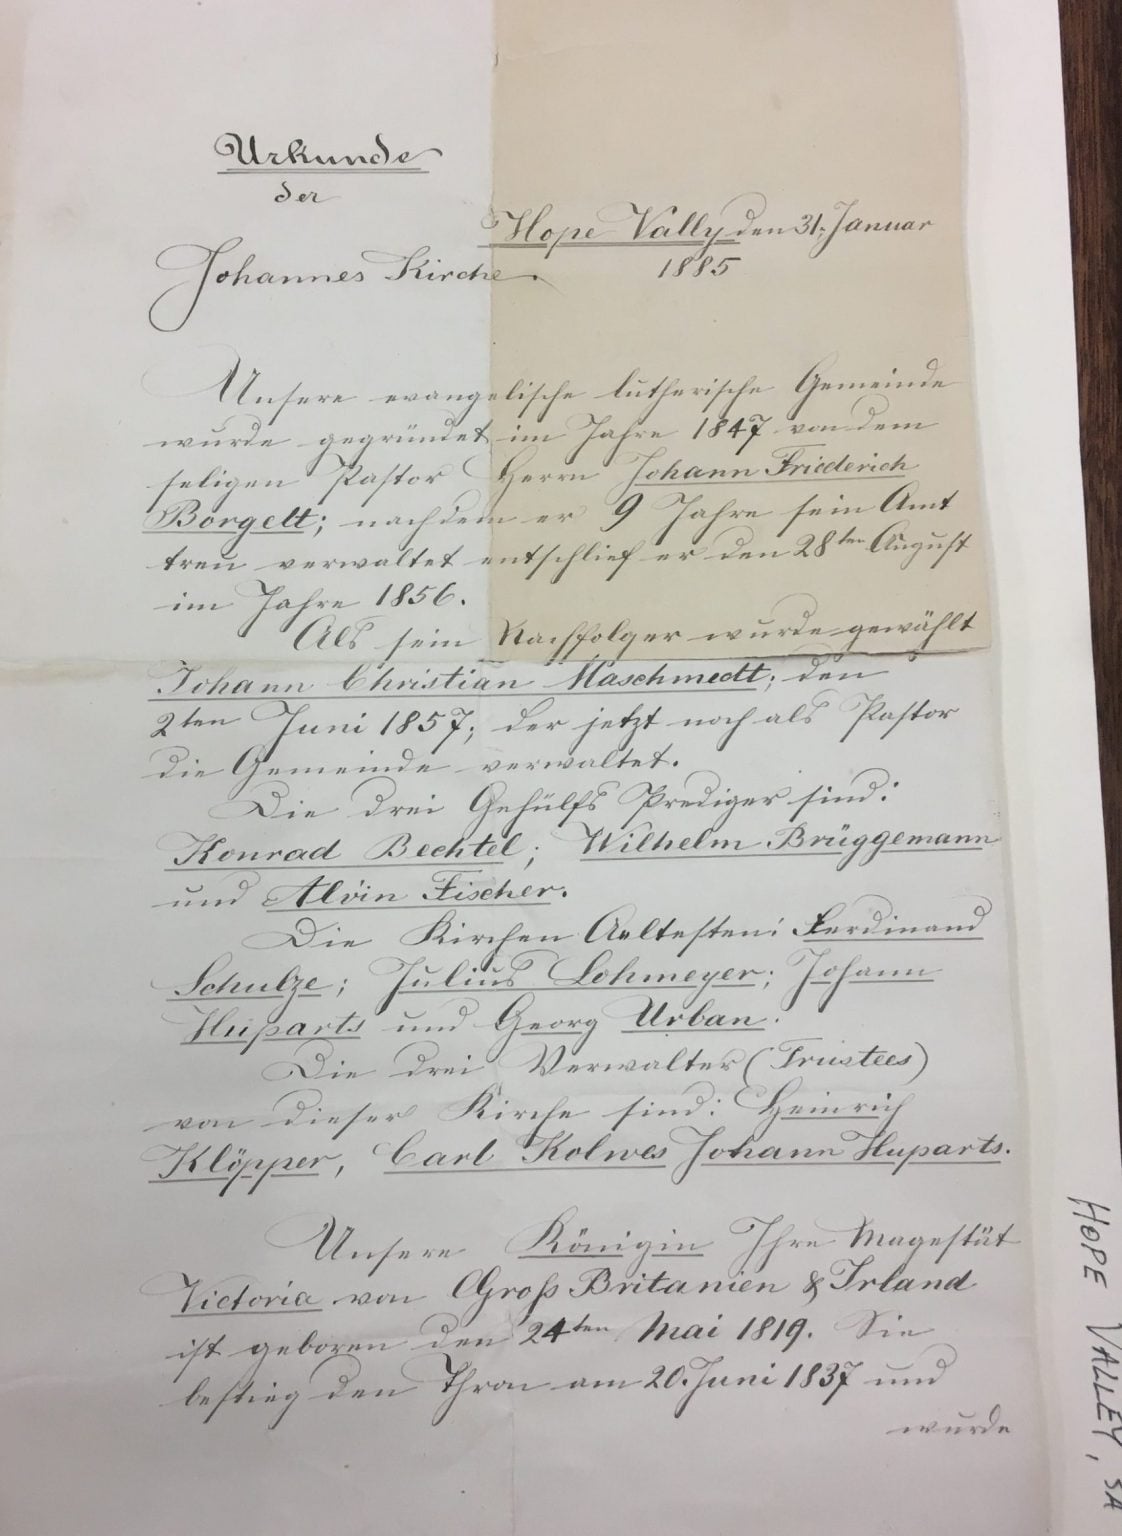 Urkunde
der
Johannes Kirche.
Hope Vally den 31. Januar
1885
Unsere evangelische lutherische Gemeinde
wurde gegründet im Jahre 1847 von dem
seligen Pastor Herrn Johann Friederich
Borgelt; nachdem er 9 Jahre sein Amt
treu verwaltet entschlief er den 28ten August
im Jahre 1856.
Als sein Nachfolger wurde gewählt
Johann Christian Maschmedt; den
2ten Juni 1857; der jetzt noch als Pastor
die Gemeinde verwaltet.
Die drei Gehülfs Prediger sind:
Konrad Bechtel; Wilhelm Brüggemann
und Alvin Fischer.
Die Kirchen Aeltesten: Ferdinand
Schulze; Julius Lohmeyer; Johann
Huparts und Georg Urban.
Die drei Verwalter (Trustees)
von dieser Kirche sind: Heinrich
Klöpper, Carl Kolwes Johann Huparts.
Unsere Königin Ihre Magestät
Victoria von Groß Britanien & Irland
ist geboren den 24ten Mai 1819. Sie
bestieg den Thron am 20. Juni 1837 und
wurde
HOPE VALLEY, SA